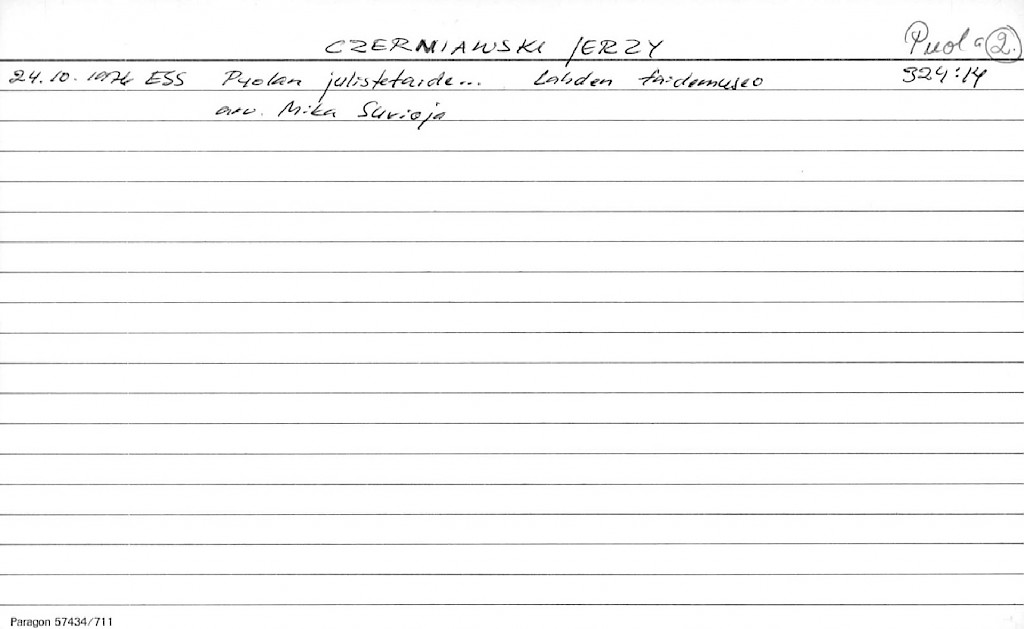 CZERNIAWSKI JERZY Puola 2.
24.10.1976 ESS Puolan julistetaide... Lahden taidemuseo 324:14
arv. Mika Suvioja
Paragon 57434/711